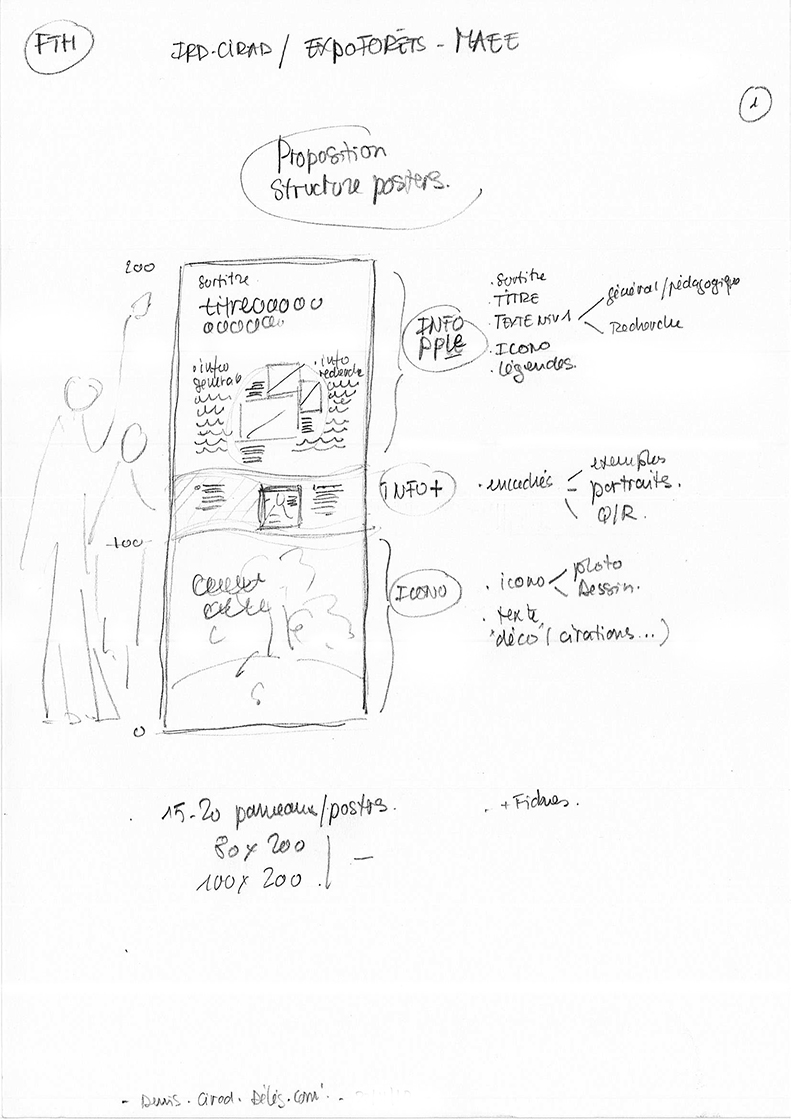 FTH
IRD-CIRAD / EXPOFORÊTS - MAEE
1
Proposition
Structure posters.
200
Surtitre
titreooooo
ooooooo
• info
générale
• info
recherche
INFO
PPLE
• Surtitre
• TITRE
• TEXTE NIV 1
général/pédagogique
Recherche
• ICONO
• Légendes.
INFO+
• encadrés
exemples
portraits.
Q/R.
100
ICONO
• icono
photo
Dessin.
• texte
"déco" (citations...)
0
. 15-20 panneaux/posters.
80 x 200
100 x 200
. + Fiches.
- Denis. Cirad. Délég. com°. -